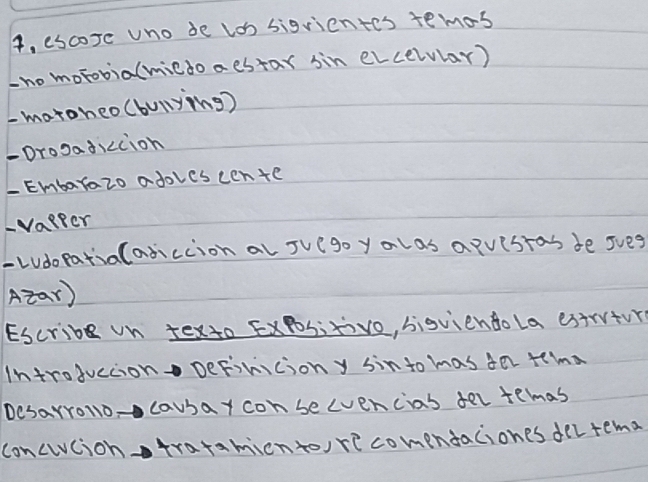 7. escoje uno de los sigrientes temas
-no mofobia(miedo a estar sin el celular)
-matoneo(bullying)
-Drogadiccion
-Embarazo adolescente
-Vapper
-Ludopatia(adiccion al juego y a las apuestas de jueg
Azar)
Escribe un texto Expositivo, siguiendo la estrutur
Introduccion → Definicion y sintomas del tema
Desarrollo → causa y consecuencias del temas
concucion → tratamiento, recomendaciones del tema